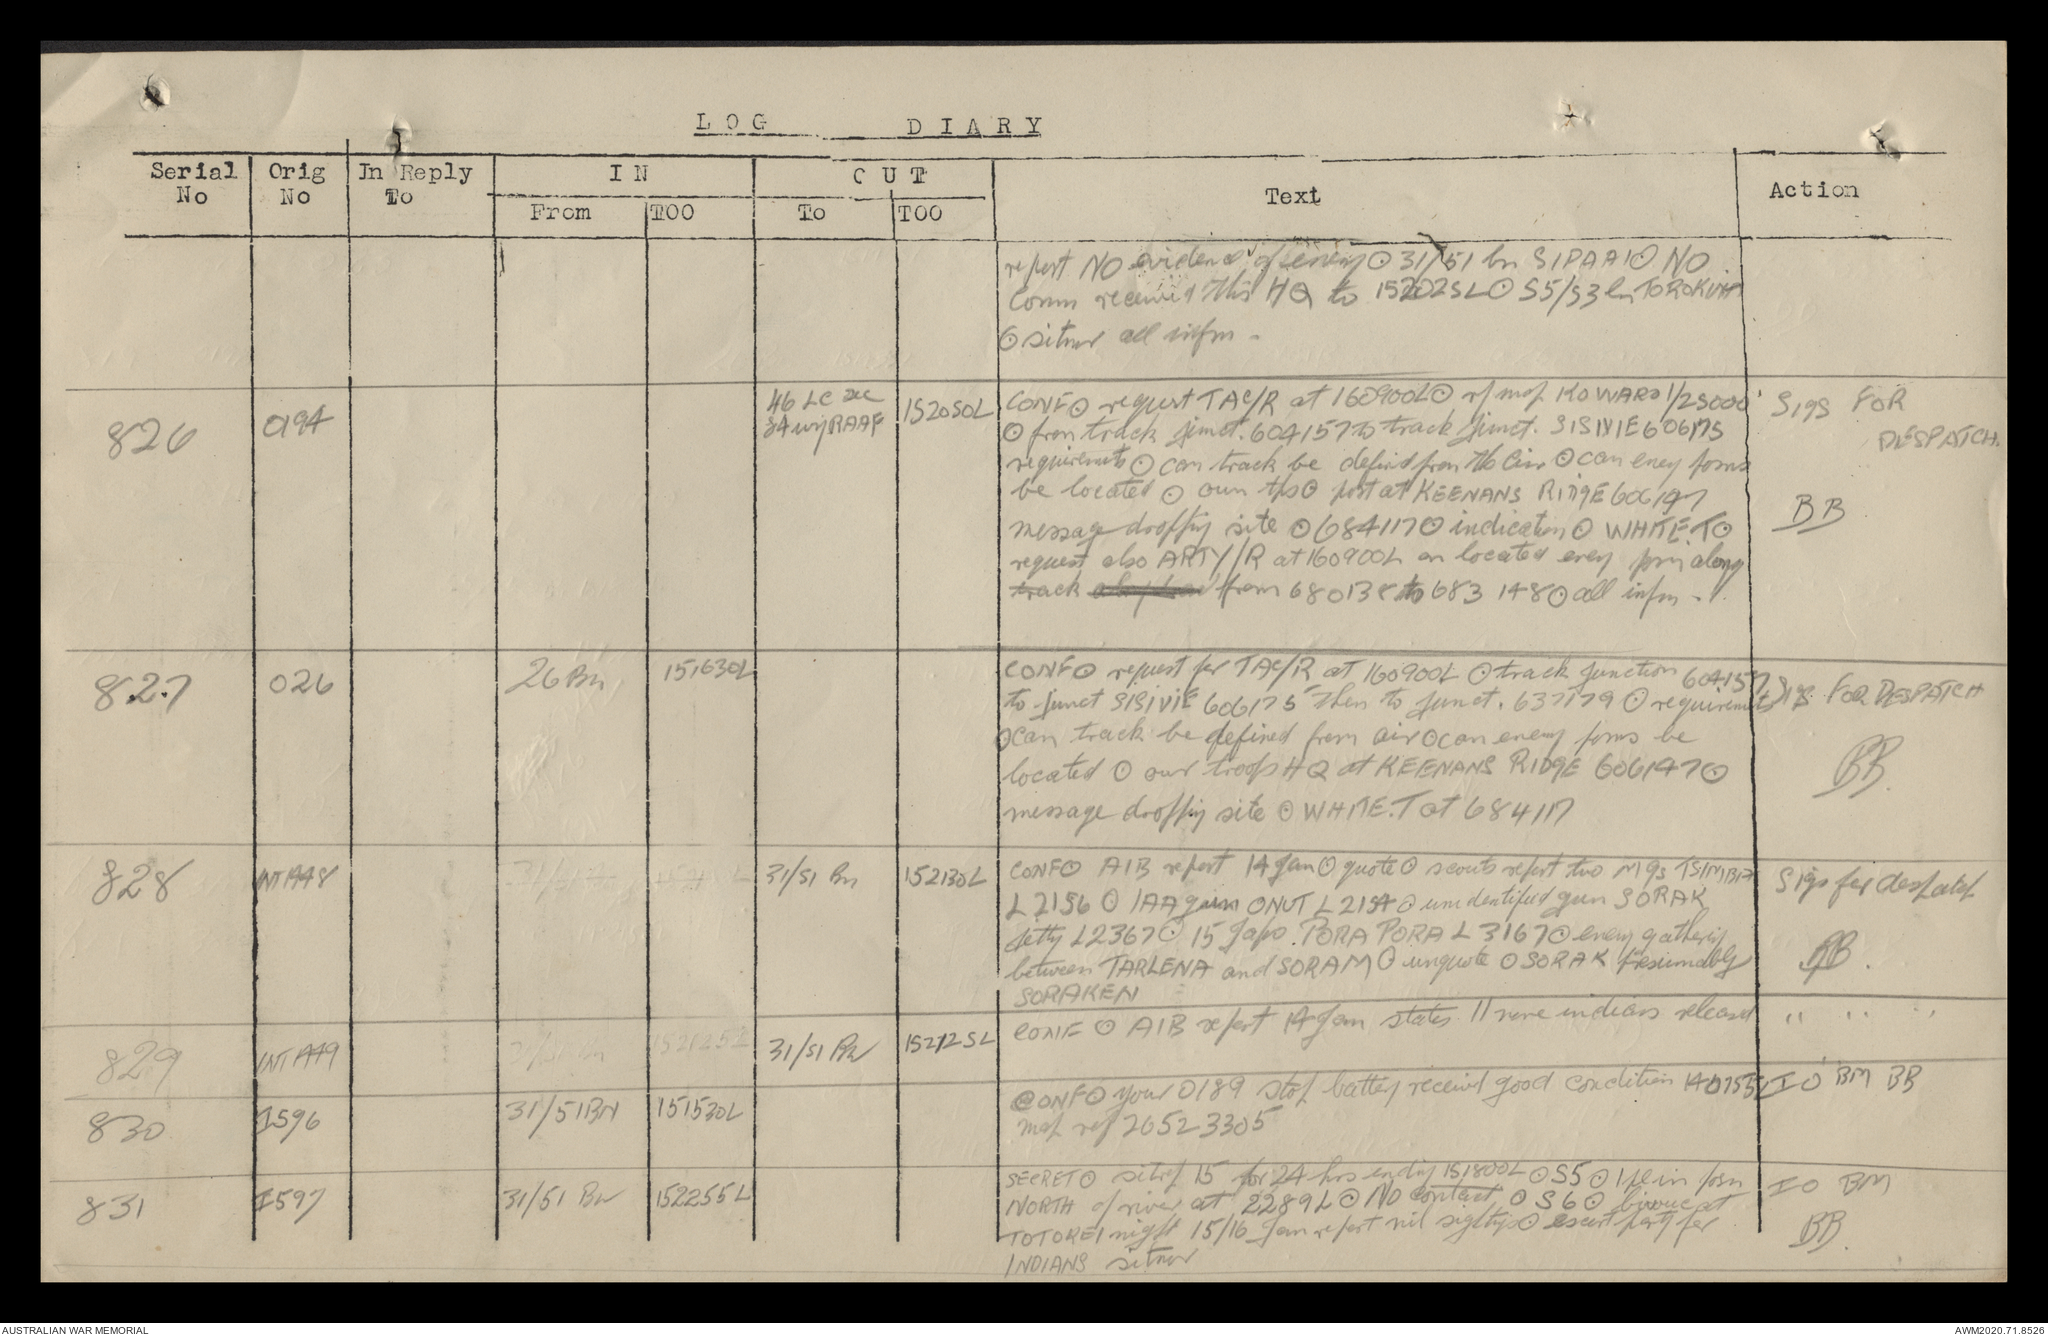 LOG DIARY
Serial No
Orig No
In Reply To
IN
From
TOO
OUT
To
TOO
Text
Action
report NO evidence of enemy ⊙ 31/51 bn SIPAAI ⊙ NO
Comm received this HQ to 152025L ⊙ 55/53 bn TOROKINA
⊙ sitnor all infm -
826
0194
46 LC Sec
84 wg RAAF
152050L
CONF ⊙ request TAC/R at 160900L ⊙ ref map KOWARO 1/25000
⊙ from track junct. 604157 to track junct. SISIVIE 606175
requirements ⊙ can track be defined from the air ⊙ can enemy posns
be located ⊙ own tps ⊙ post at KEENANS RIDGE 606147
message dropping site ⊙ 684117 ⊙ indication ⊙ WHITE.T ⊙
request also ARTY/R at 160900L on located enemy posn along
track from 680138 to 683148 ⊙ all infm -
Sigs FOR
DESPATCH.
BB
827
026
26 Bn
151630L
CONF ⊙ request for TAC/R at 160900L ⊙ track junction 604157
to junct SISIVIE 606175 then to junct. 637179 ⊙ requirements
⊙ can track be defined from air ⊙ can enemy posns be
located ⊙ our troops HQ at KEENANS RIDGE 606147 ⊙
message dropping site ⊙ WHITE.T at 684117
Sigs FOR DESPATCH
BB.
828
INT 1448
31/51 Bn
152130L
CONF ⊙ AIB report 14 Jan ⊙ quote ⊙ scouts report two MGs TSIMBA
L2156 ⊙ 1AA gun ONUT L2154 ⊙ unidentified gun SORAK
Jetty L2367 ⊙ 15 Japs. PORA PORA L3167 ⊙ enemy gathering
between TARLENA and SORAM ⊙ unquote ⊙ SORAK presumably
SORAKEN
Sigs for despatch
BB.
829
INT 1449
31/51 Bn
152125L
31/51 Bn
152125L
CONF ⊙ AIB report 14 Jan states 11 more indians released
" " "
830
I596
31/51 BN
151530L
CONF ⊙ your 0189 stop battery received good condition
map ref 26523305
IO BM BB
831
I597
31/51 Bn
152255L
SECRET ⊙ sitrep 15 for 24 hrs ending 151800L ⊙ S5 ⊙ 1 pl in posn
NORTH of river at 2289L ⊙ NO contact ⊙ S6 ⊙ bivouc at
TOTOKEI night 15/16 Jan report nil sightings ⊙ escort party for
INDIANS sitnor
IO BM
BB.
AUSTRALIAN WAR MEMORIAL
AWM2020.71.8526